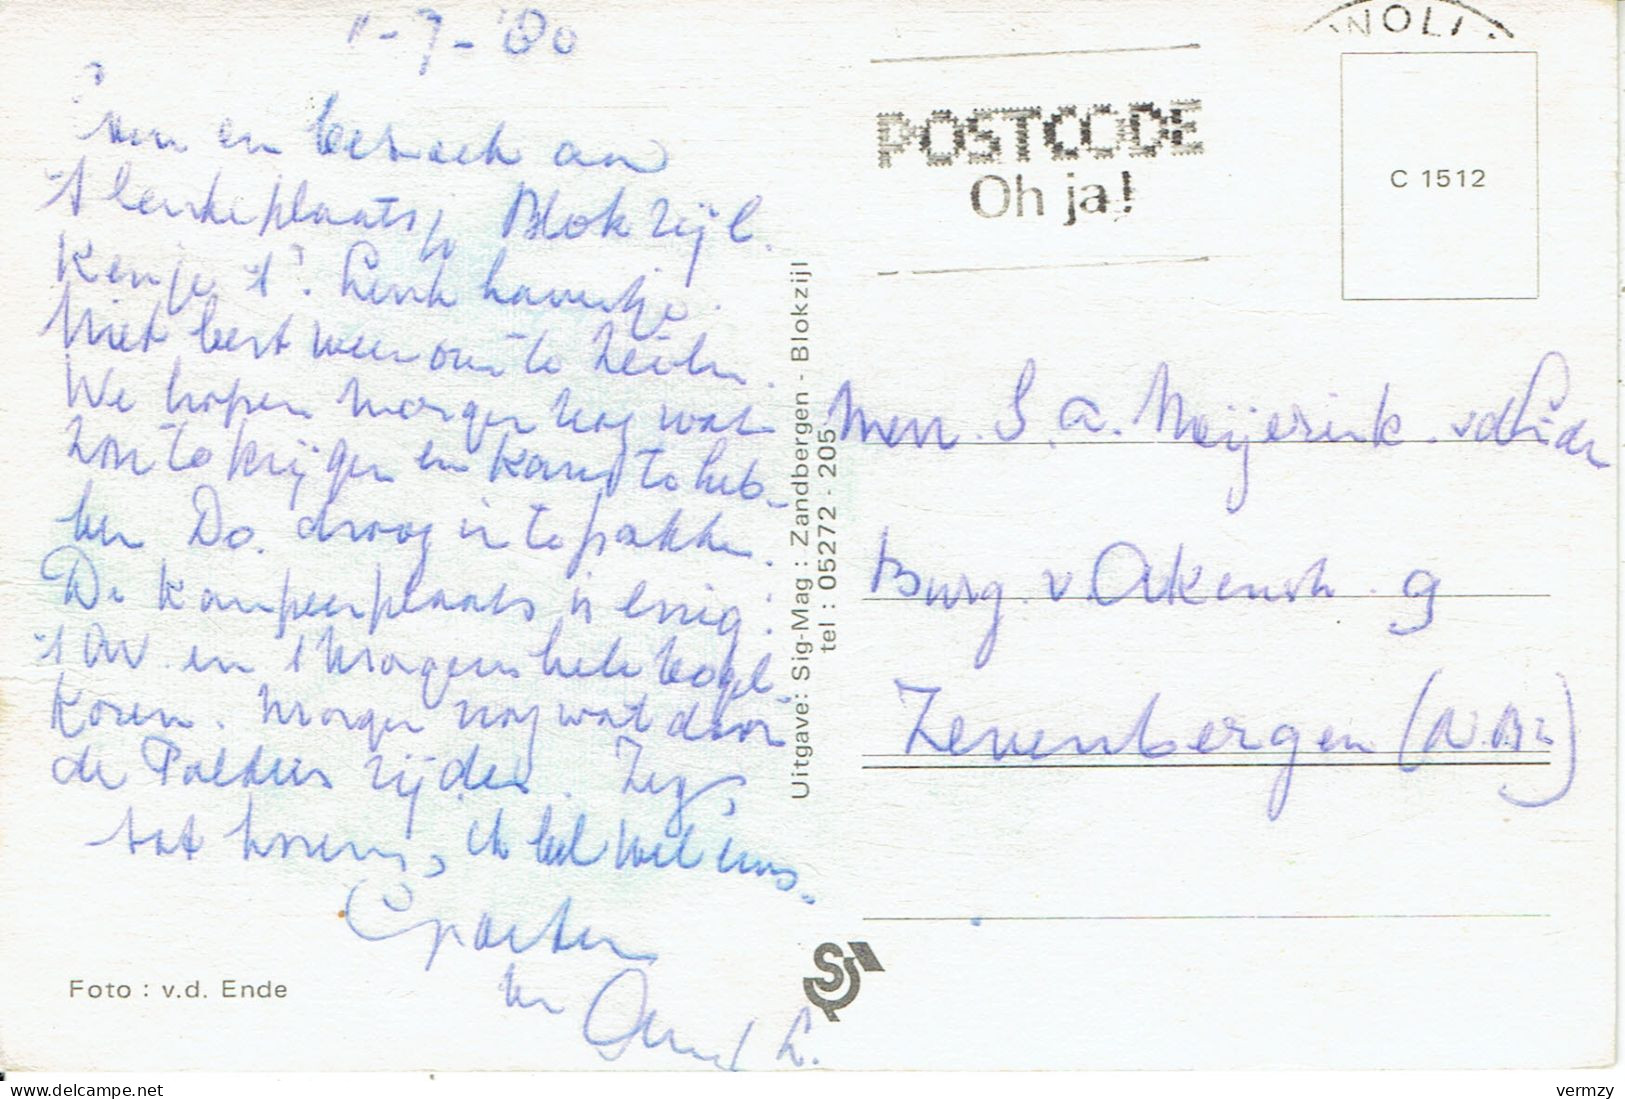 1-7-'80
en bezoek aan
't leuke plaatsje Blokzijl.
Ken je 't? Leuk haventje.
Niet best weer om te zeilen.
We hopen morgen nog wat
zon te krijgen en kans te heb-
ben Do. droog in te pakken.
De kampeerplaats is enig!
't Av. en 's morgens hele vogel
koren. Morgen nog wat door
de Polders rijden. Zeg,
tot horens, ik bel wel eens.
Groeten
van
L.
Foto : v.d. Ende
Uitgave: Sig-Mag : Zandbergen - Blokzijl
tel : 05272 - 205
NOLI
POSTCODE
Oh ja!
C 1512
Mevr. S. A. Meijerink. v d
Burg. v. Akenstr. 9
Zevenbergen (N. Br)
vermzy